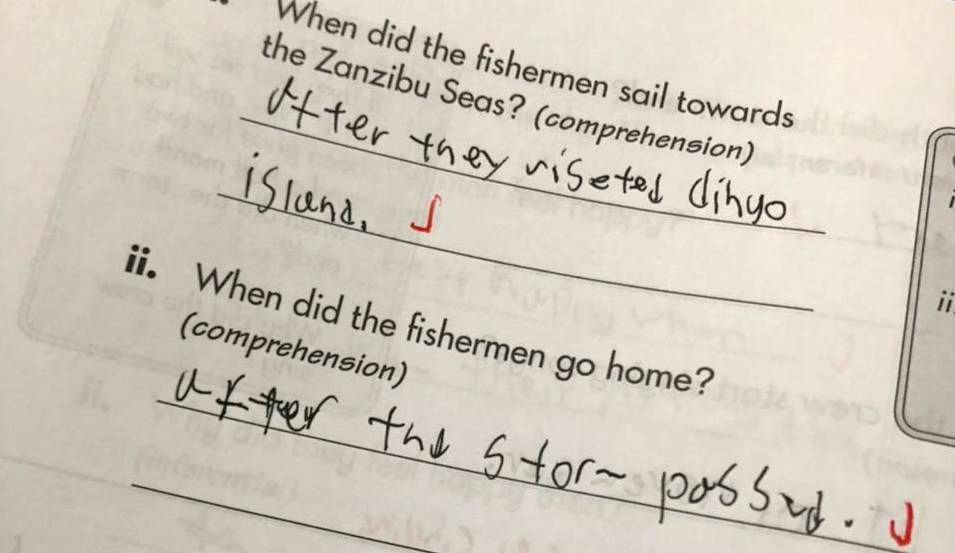 When did the fishermen sail towards
the Zanzibu Seas? (comprehension)
After they viseted dihyo
island.
ii. When did the fishermen go home?
(comprehension)
after the storm passed.
ii.